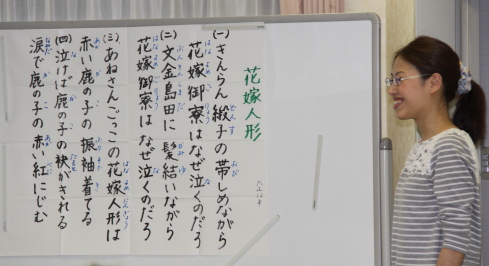 花嫁人形
(一)きんらん緞子の帯しめながら
花嫁御寮はなぜ泣くのだろ
(二)文金島田に髪結いながら
花嫁御寮はなぜ泣くのだろ
(三)あねさんごっこの花嫁人形は
赤い鹿の子の振袖着てる
(四)泣けば鹿の子の袂がきれる
涙で鹿の子の赤い紅にじむ